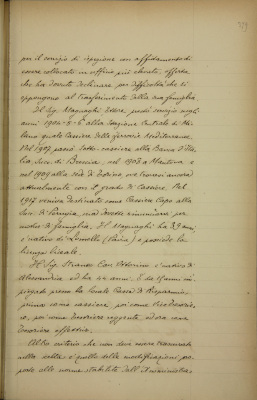 per il servizio di ispezione con affidamento di
essere collocato in ufficio più elevato, offerta
che ha dovuto declinare per difficoltà che si
oppongono al trasferimento della sua famiglia.
Il Sig. Ettore, prestò servizio negli
anni 1904-5-6 alla Stazione Centrale di Mi-
lano quale Cassiere delle ferrovie Mediterranee.
Nel 1907 passò sotto-cassiere alla Banca d'Ita-
lia, Succ. di Brescia, nel 1908 a Mantova e
nel 1909 alla sede di Torino, ove trovasi ancora
attualmente con il grado di Cassiere. Nel
1917 veniva destinato come Cassiere Capo alla
Succ. di Perugia, ma dovette rinunciare per
motivi di famiglia. Il ha 39 anni,
è nativo di (Pavia) e possiede la
licenza liceale.
Il Sig. Cav. Vittorio è nativo di
Alessandria, ed ha 44 anni. È da 19 anni im-
piegato presso la locale Cassa di Risparmio,
prima come cassiere poi come Vice
poi come reggente, ed ora come
effettivo.
Altro criterio che non deve essere trascurato
nella scelta è quello delle modificazioni pro-
poste alle norme stabilite dall'Amministra-